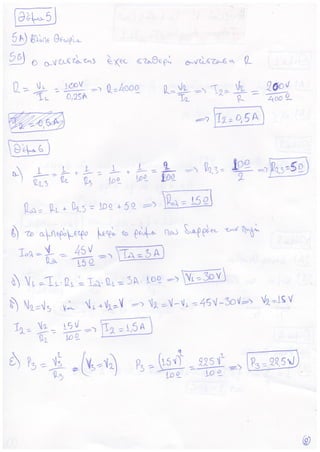 Θέμα 5
5Α) Βλέπε Θεωρία
5Β) Ο αντιστάτης έχει σταθερή αντίσταση R
R = V₁/I₁ = 100V/0,25A ⇒ R = 400Ω R = V₂/I₂ ⇒ I₂ = V₂/R = 200V/400Ω
I₂ = 0,5A ⇒ I₂ = 0,5A
Θέμα 6
α) 1/R₂,₃ = 1/R₂ + 1/R₃ = 1/10Ω + 1/10Ω = 2/10Ω ⇒ R₂,₃ = 10Ω/2 ⇒ R₂,₃ = 5Ω
Rολ = R₁ + R₂,₃ = 10Ω + 5Ω ⇒ Rολ = 15Ω
β) Το αμπερόμετρο μετρά το ρεύμα που διαρρέει την πηγή
Iολ = V/Rολ = 45V/15Ω ⇒ Iολ = 3A
γ) V₁ = I₁·R₁ = Iολ·R₁ = 3A·10Ω ⇒ V₁ = 30V
δ) V₂ = V₃ και V₁ + V₂ = V ⇒ V₂ = V - V₁ = 45V - 30V ⇒ V₂ = 15V
I₂ = V₂/R₂ = 15V/10Ω ⇒ I₂ = 1,5A
ε) P₃ = V₃²/R₃ = (V₃ = V₂) P₃ = (15V)²/10Ω = 225V²/10Ω ⇒ P₃ = 22,5W
②